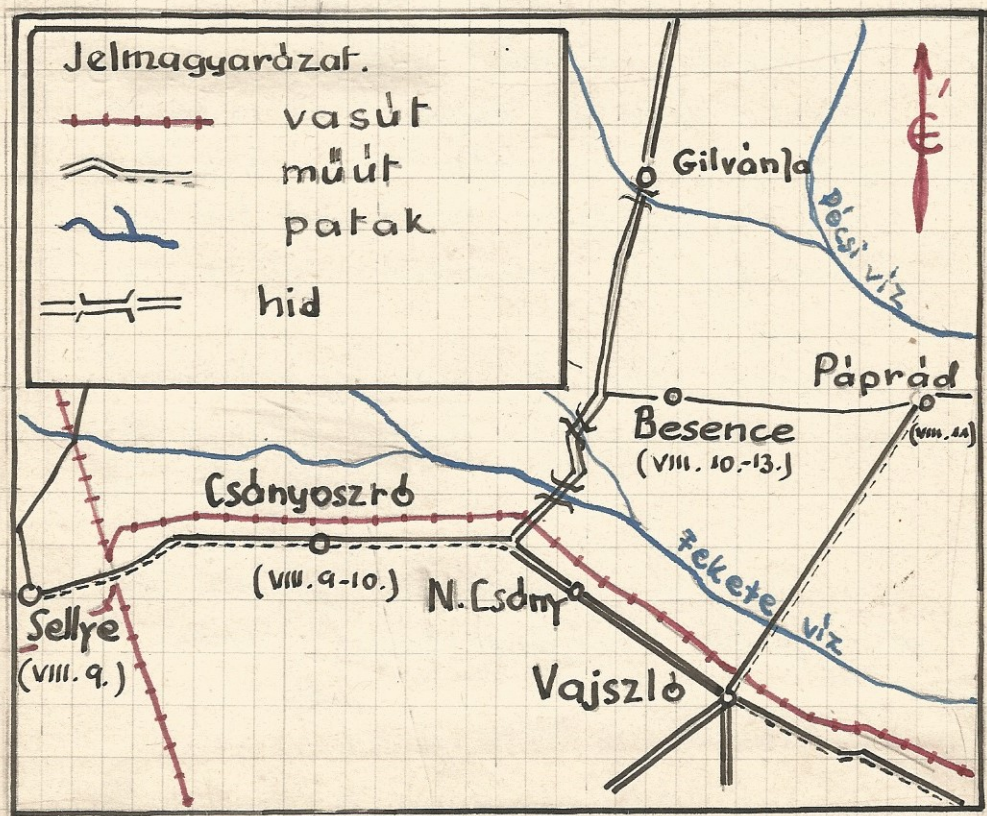 Jelmagyarázat.
vasút
műút
patak
hid
É
Gilvánfa
Pécsi víz
Páprád
(VIII. 11)
Besence
(VIII. 10.-13.)
Csányoszró
(VIII. 9-10.)
N. Csány
Fekete víz
Sellye
(VIII. 9.)
Vajszló